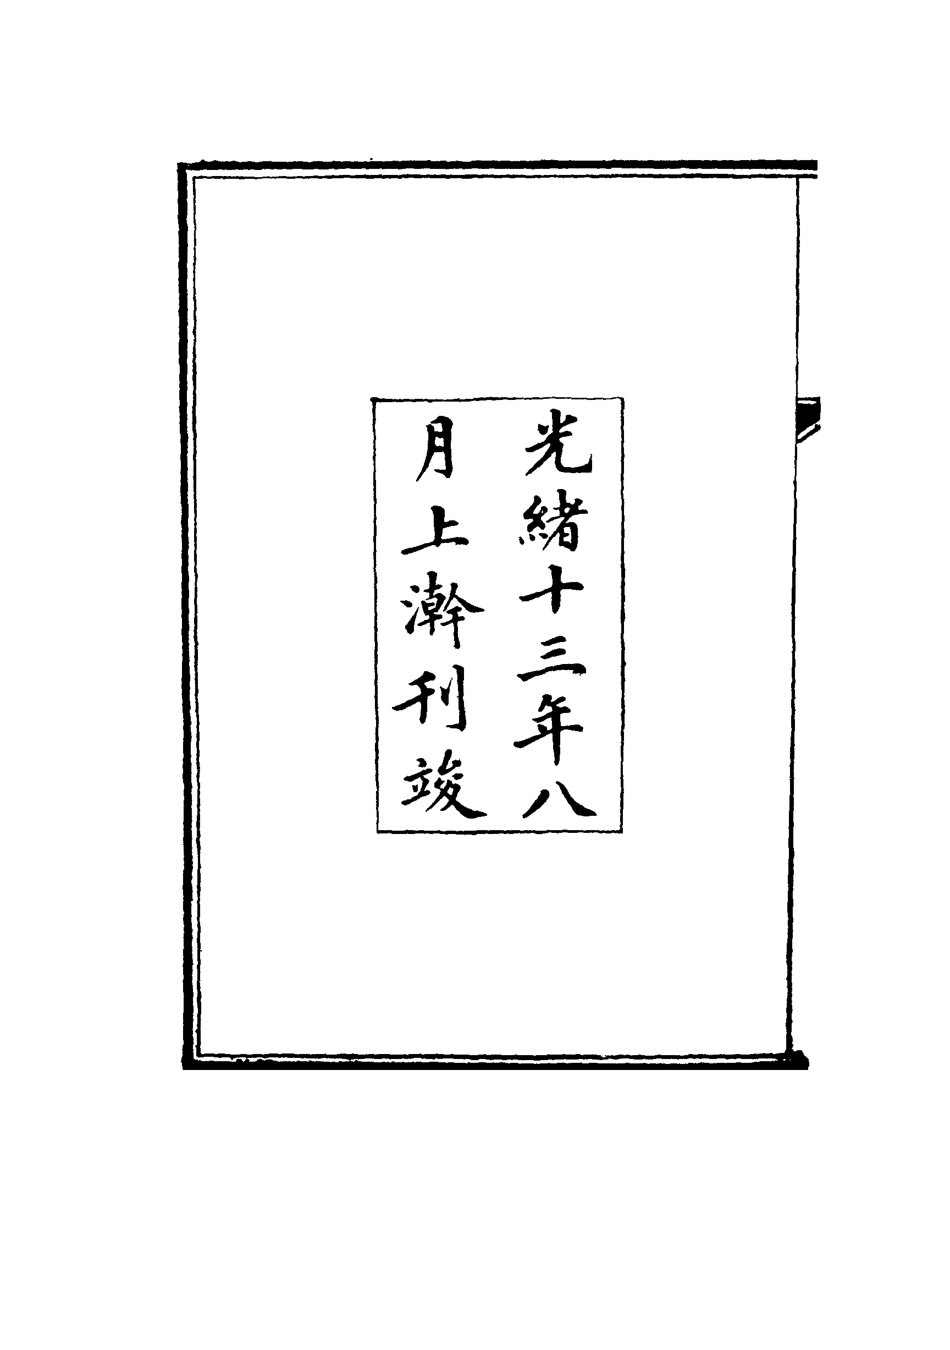 光緒十三年八
月上澣刊竣